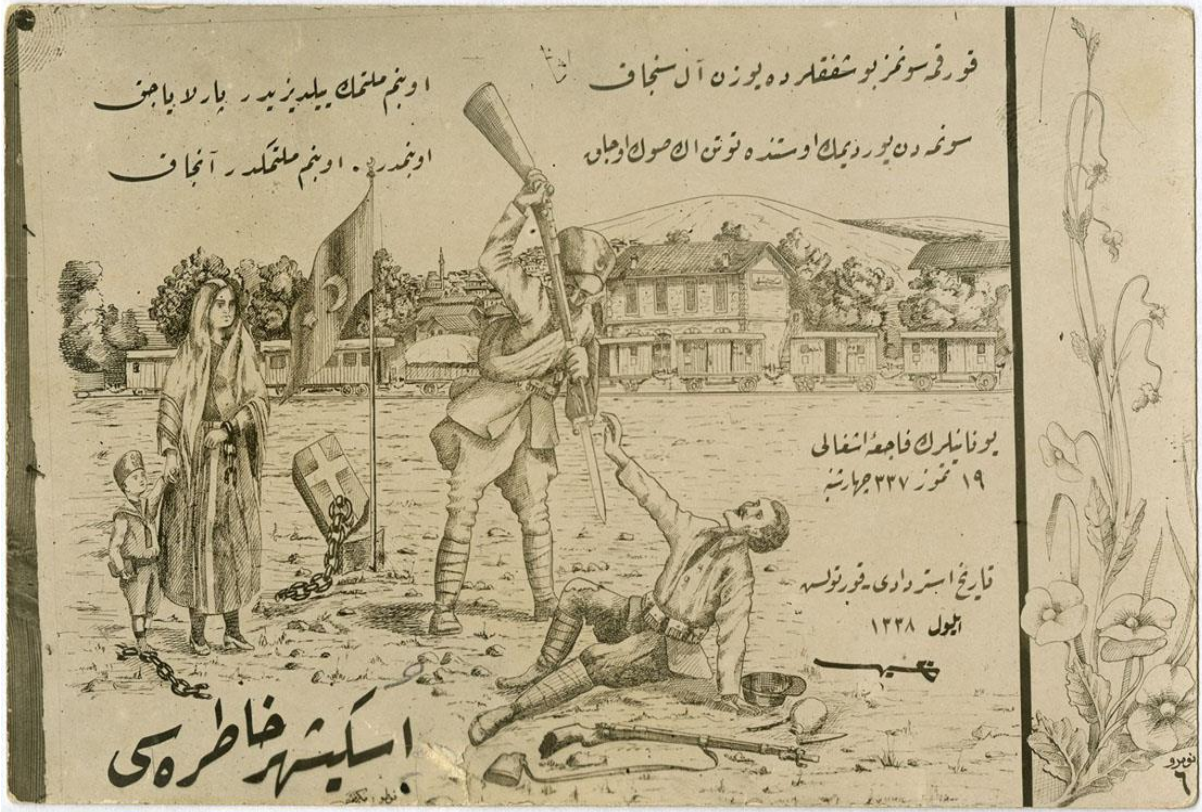 قورقمه سونمز بو شفقلرده یوزن آل سنجاق
سونمه دن یوردیمك اوستنده توتن اك صوك اوجاق
او بنم ملتمك ییلدیزیدر پارلایاجق
او بنمدر . او بنم ملتمكدر آنجاق
یونانیلرك فاجعۀ اشغالی
١٩ تموز ٣٣٧ چهارشنبه
تاریخ استردادی
ایلول ١٣٣٨
اسكیشهر خاطره سی
نومرو
٦